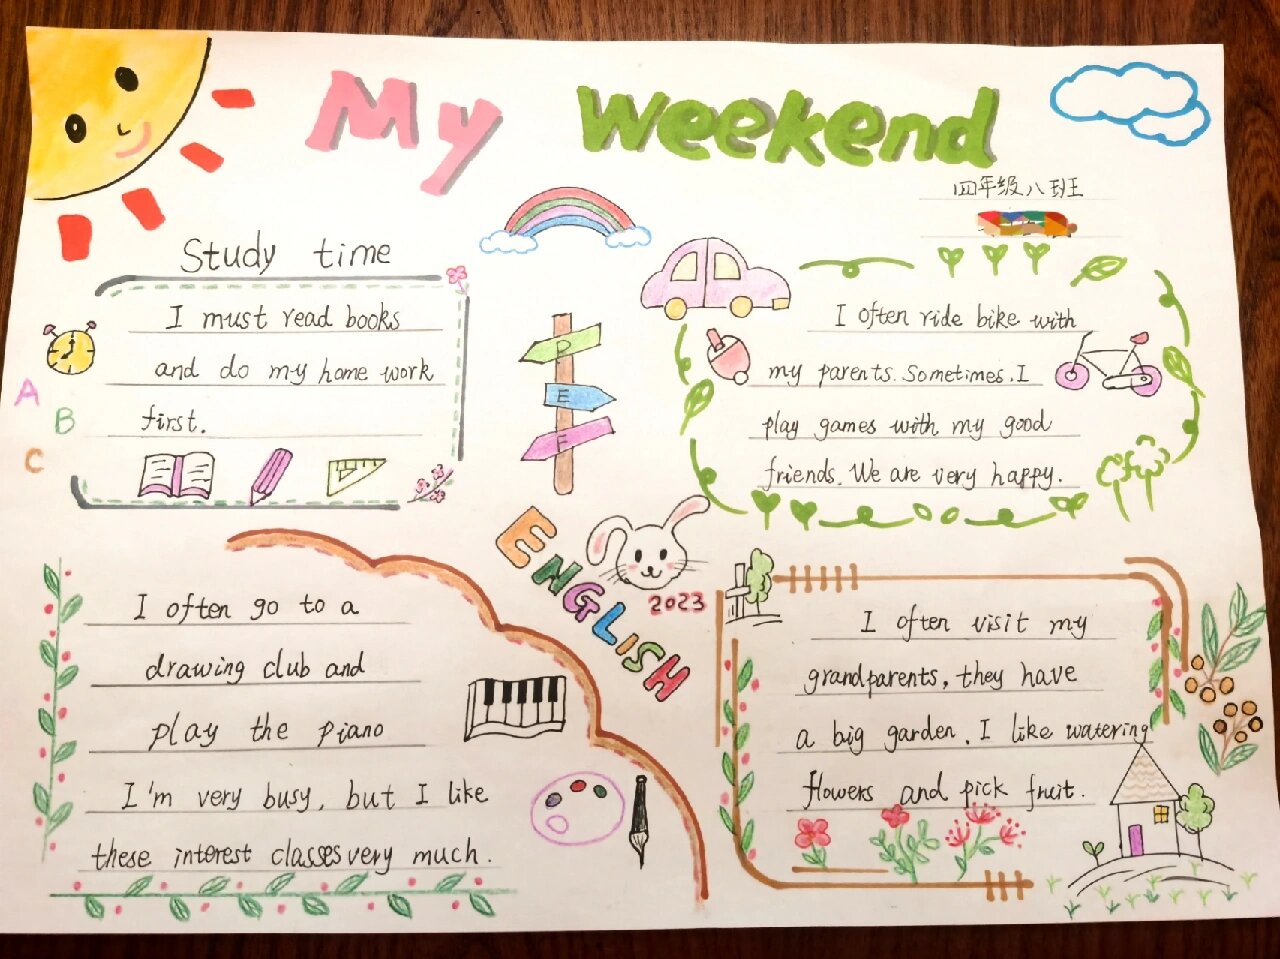 My Weekend
四年级八班
Study time
I must read books
and do my home work
first.
A
B
C
P
E
F
I often ride bike with
my parents. Sometimes. I
play games with my good
friends. We are very happy.
ENGLISH
2023
I often go to a
drawing club and
play the piano
I'm very busy, but I like
these interest classes very much.
I often visit my
grandparents, they have
a big garden. I like watering
flowers and pick fruit.